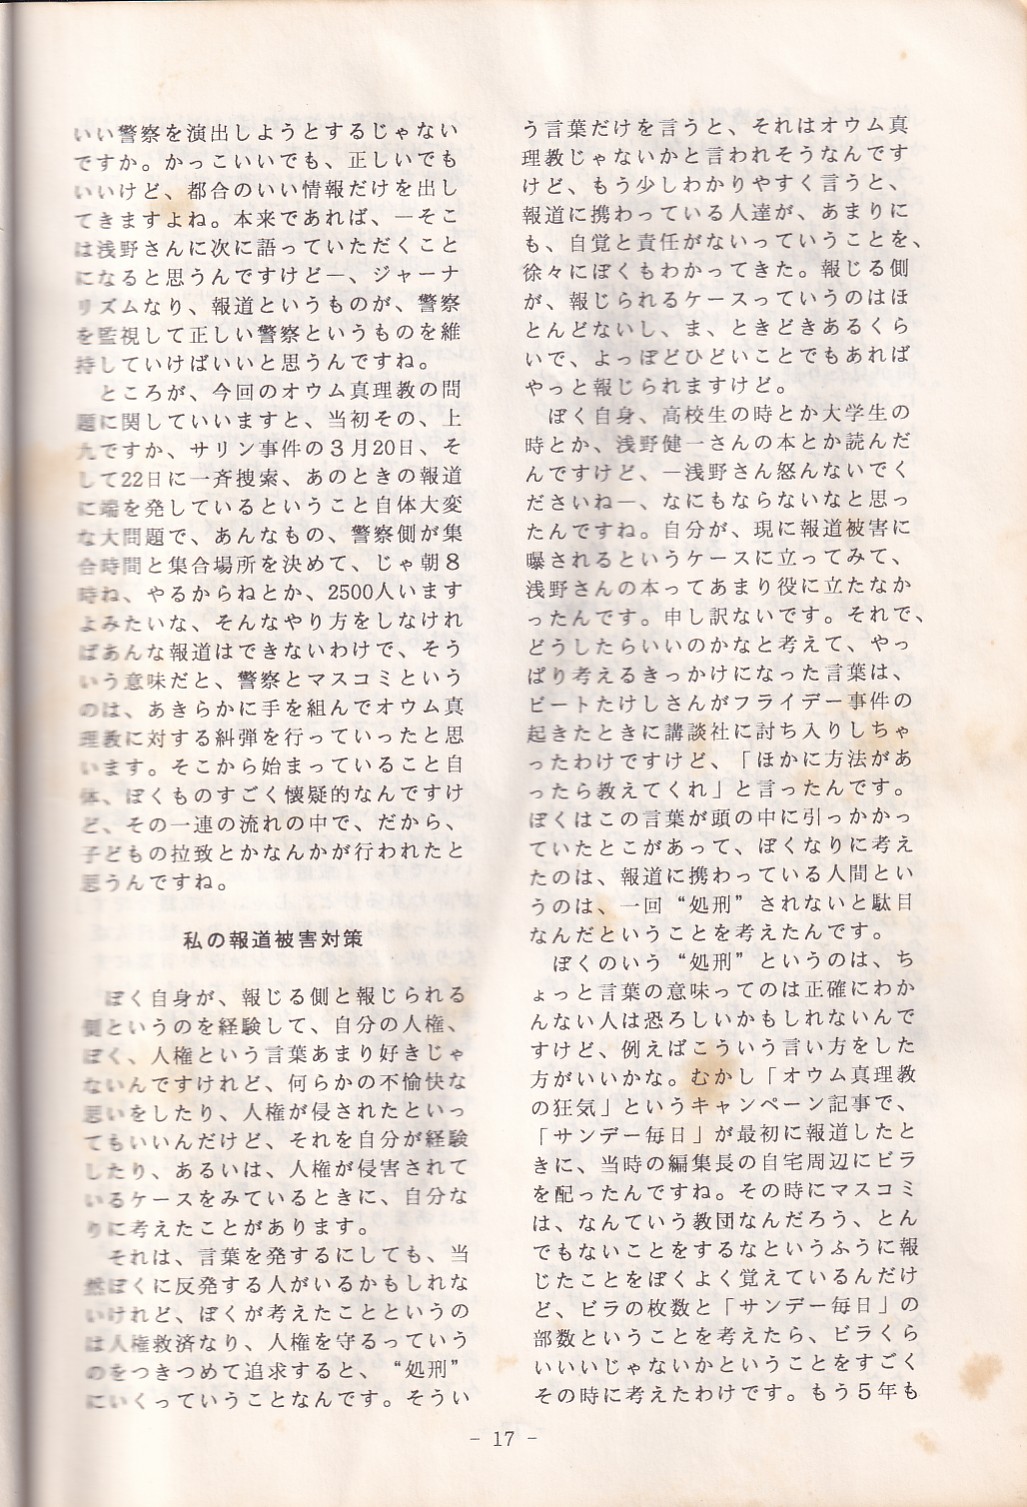 いい警察を演出しようとするじゃない
ですか。かっこいいでも、正しいでも
いいけど、都合のいい情報だけを出し
てきますよね。本来であれば、―そこ
は浅野さんに次に語っていただくこと
になると思うんですけど―、ジャーナ
リズムなり、報道というものが、警察
を監視して正しい警察というものを維
持していけばいいと思うんですね。
　ところが、今回のオウム真理教の問
題に関していいますと、当初その、上
九ですか、サリン事件の３月20日、そ
して22日に一斉捜索、あのときの報道
に端を発しているということ自体大変
な大問題で、あんなもの、警察側が集
合時間と集合場所を決めて、じゃ朝８
時ね、やるからねとか、2500人います
よみたいな、そんなやり方をしなけれ
ばあんな報道はできないわけで、そう
いう意味だと、警察とマスコミという
のは、あきらかに手を組んでオウム真
理教に対する糾弾を行っていったと思
います。そこから始まっていること自
体、ぼくものすごく懐疑的なんですけ
ど、その一連の流れの中で、だから、
子どもの拉致とかなんかが行われたと
思うんですね。
私の報道被害対策
　ぼく自身が、報じる側と報じられる
側というのを経験して、自分の人権、
ぼく、人権という言葉あまり好きじゃ
ないんですけれど、何らかの不愉快な
思いをしたり、人権が侵されたといっ
てもいいんだけど、それを自分が経験
したり、あるいは、人権が侵害されて
いるケースをみているときに、自分な
りに考えたことがあります。
　それは、言葉を発するにしても、当
然ぼくに反発する人がいるかもしれな
いけれど、ぼくが考えたことというの
は人権救済なり、人権を守るっていう
のをつきつめて追求すると、“処刑”
にいくっていうことなんです。そうい
う言葉だけを言うと、それはオウム真
理教じゃないかと言われそうなんです
けど、もう少しわかりやすく言うと、
報道に携わっている人達が、あまりに
も、自覚と責任がないっていうことを、
徐々にぼくもわかってきた。報じる側
が、報じられるケースっていうのはほ
とんどないし、ま、ときどきあるくら
いで、よっぽどひどいことでもあれば
やっと報じられますけど。
　ぼく自身、高校生の時とか大学生の
時とか、浅野健一さんの本とか読んだ
んですけど、―浅野さん怒んないでく
ださいね―、なにもならないなと思っ
たんですね。自分が、現に報道被害に
曝されるというケースに立ってみて、
浅野さんの本ってあまり役に立たなか
ったんです。申し訳ないです。それで、
どうしたらいいのかなと考えて、やっ
ぱり考えるきっかけになった言葉は、
ビートたけしさんがフライデー事件の
起きたときに講談社に討ち入りしちゃ
ったわけですけど、「ほかに方法があ
ったら教えてくれ」と言ったんです。
ぼくはこの言葉が頭の中に引っかかっ
ていたとこがあって、ぼくなりに考え
たのは、報道に携わっている人間とい
うのは、一回“処刑”されないと駄目
なんだということを考えたんです。
　ぼくのいう“処刑”というのは、ち
ょっと言葉の意味ってのは正確にわか
んない人は恐ろしいかもしれないんで
すけど、例えばこういう言い方をした
方がいいかな。むかし「オウム真理教
の狂気」というキャンペーン記事で、
「サンデー毎日」が最初に報道したと
きに、当時の編集長の自宅周辺にビラ
を配ったんですね。その時にマスコミ
は、なんていう教団なんだろう、とん
でもないことをするなというふうに報
じたことをぼくよく覚えているんだけ
ど、ビラの枚数と「サンデー毎日」の
部数ということを考えたら、ビラくら
いいいじゃないかということをすごく
その時に考えたわけです。もう５年も
- 17 -